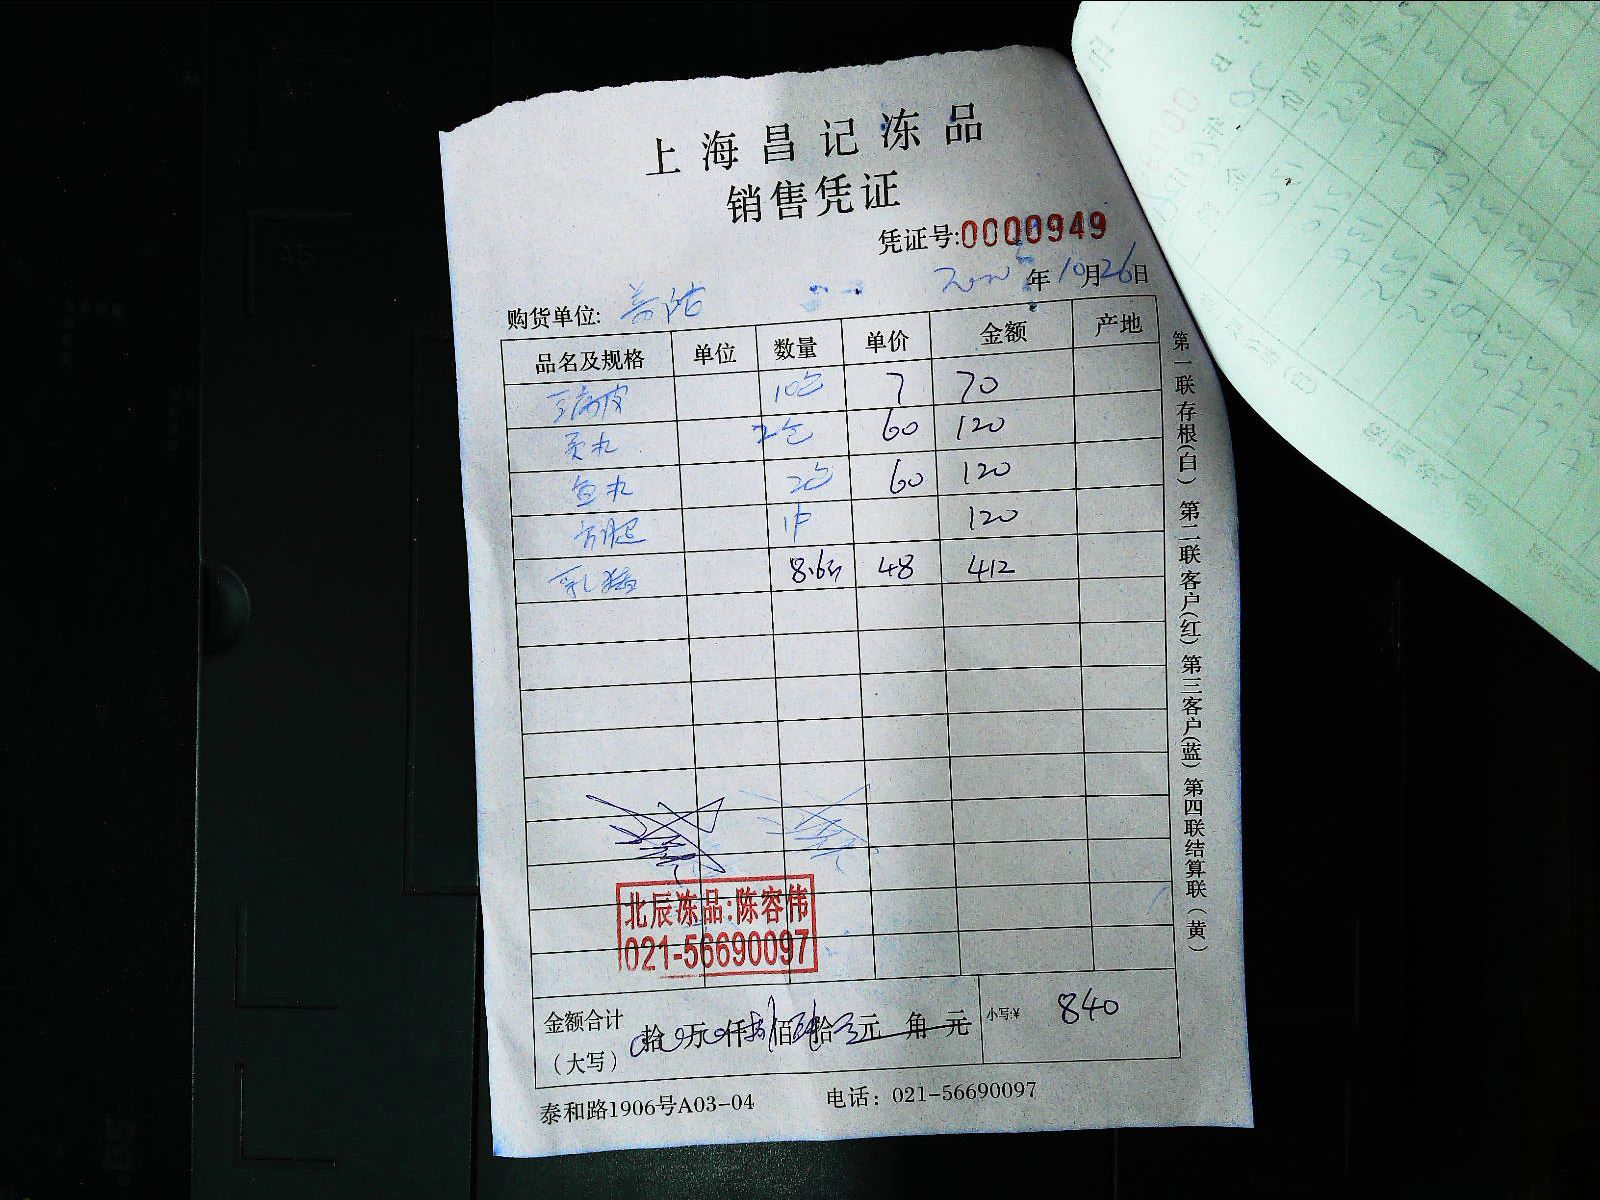 上海昌记冻品
销售凭证
凭证号:0000949
年10月26日
购货单位:
品名及规格 单位 数量 单价 金额 产地
豆腐皮 10包 7 70
贡丸 2包 60 120
鱼丸 2包 60 120
方腿 1件 120
乳猪 8.6斤 48 412
北辰冻品:陈容伟
021-56690097
金额合计
(大写) 拾 万 仟 佰 拾 元 角 元 小写:¥ 840
泰和路1906号A03-04 电话: 021-56690097
第一联存根(白) 第二联客户(红) 第三客户(蓝) 第四联结算联(黄)